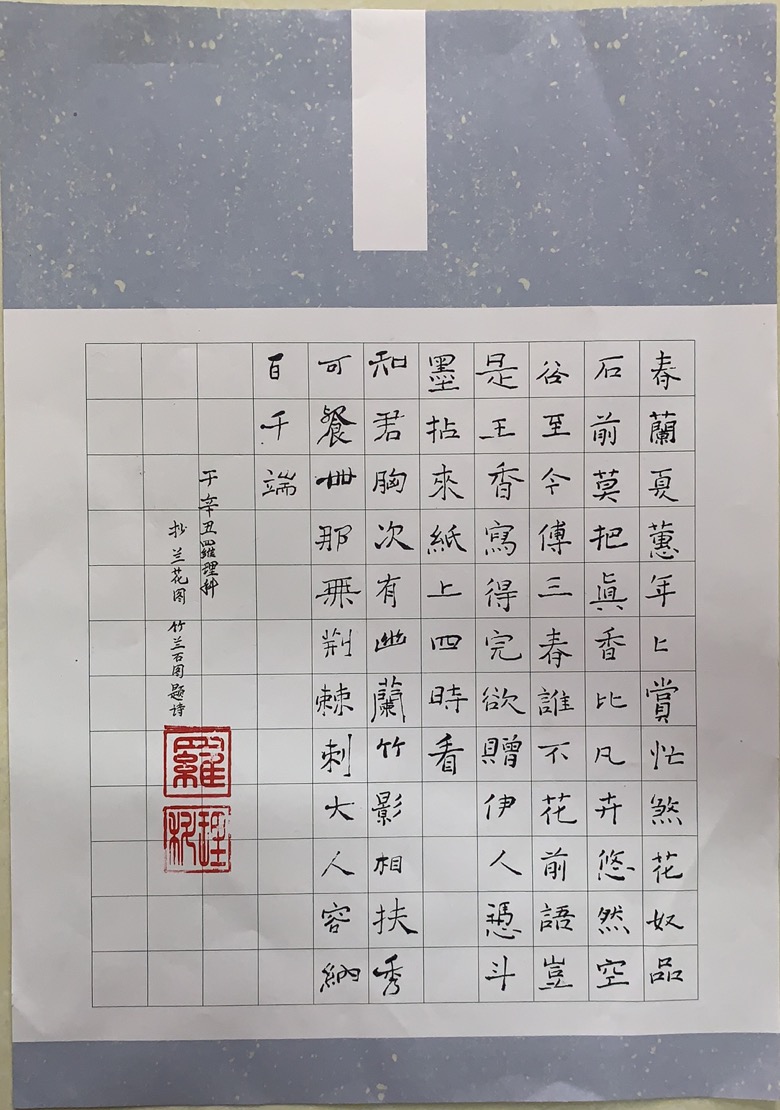 春蘭夏蕙年〻賞忙煞花奴品
石前莫把眞香比凡卉悠然空
谷至今傅三春誰不花前語豈
是王香寫得完欲贈伊人憑斗
墨拈來紙上四時看
和君胸次有幽蘭竹影相扶秀
可餐世那無荆棘刺大人容納
百千端
于辛丑羅理科
抄兰花图 竹兰石图題诗
羅
理科